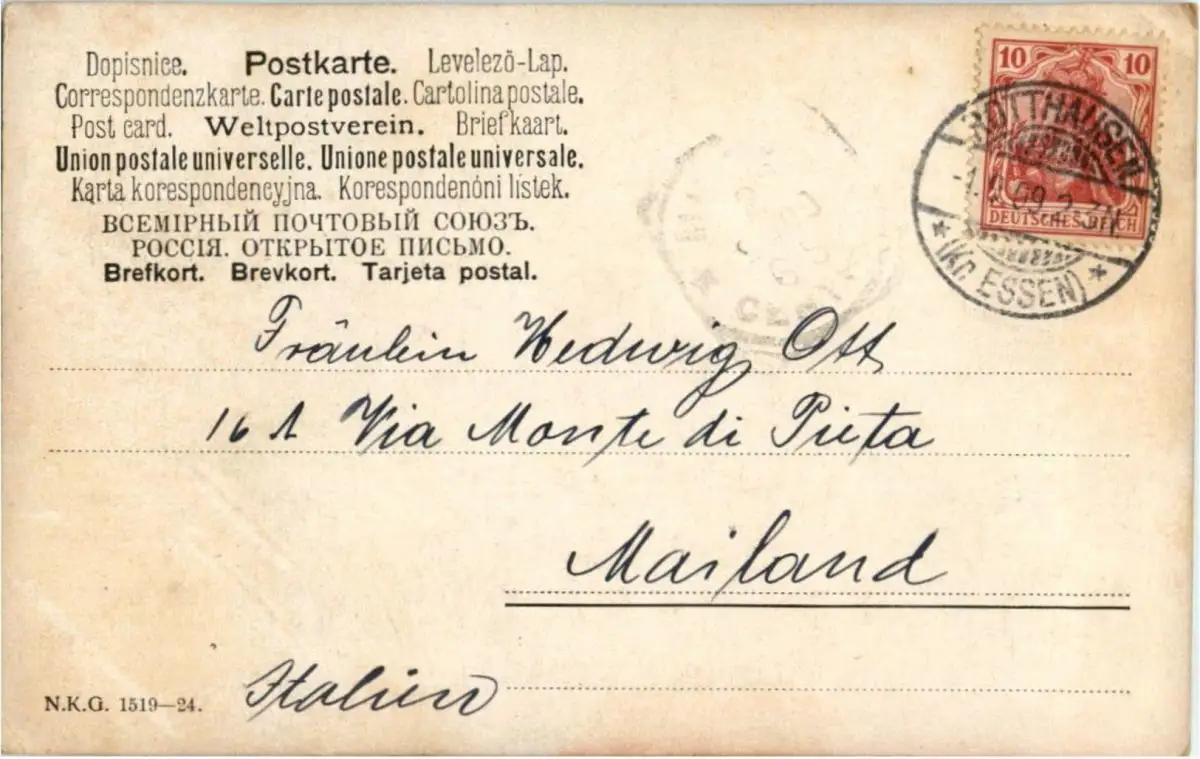 Dopisnice. Postkarte. Levelező-Lap.
Correspondenzkarte. Carte postale. Cartolina postale.
Post card. Weltpostverein. Briefkaart.
Union postale universelle. Unione postale universale.
Karta korespondencyjna. Korespondenčni listek.
ВСЕМІРНЫЙ ПОЧТОВЫЙ СОЮЗЪ.
РОССІЯ. ОТКРЫТОЕ ПИСЬМО.
Brefkort. Brevkort. Tarjeta postal.
10 10
DEUTSCHES REICH
ROTTHAUSEN
(Kr. ESSEN)
Fräulein Hedwig Ott
16 A Via Monte di Pieta
Mailand
Italien
N.K.G. 1519—24.